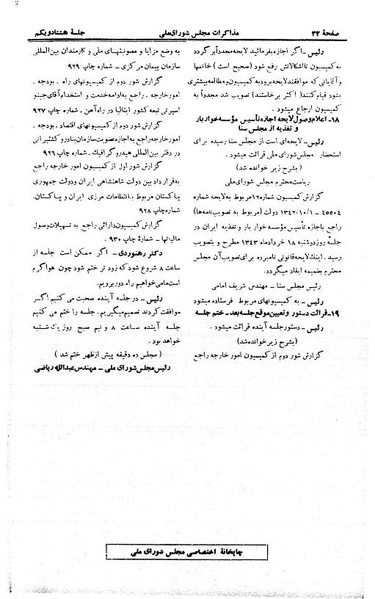 صفحهٔ ۳۲
مذاکرات مجلس شورای ملی
جلسهٔ هشتادویکم
رئیس - اگر اجازه بفرمائید لایحه مجدداً برگردد
به کمیسیون تا اشکالاتش رفع شود (صحیح است) خانمها
و آقایانی که موافقند لایحه برود به کمیسیون و مطالعه بیشتری
شود قیام کنند (اکثر برخاستند) تصویب شد به کمیسیون
ارجاع میشود .
۱۸- اعلام وصول لایحه اجازه تأسیس مؤسسه خواربار
و تغذیه از مجلس سنا
رئیس - لایحه‌ای است از مجلس سنا رسیده برای
استحضار مجلس شورای ملی قرائت میشود .
(بشرح زیر خوانده شد)
ریاست محترم مجلس شورای ملی
گزارش کمیسیون شماره ۲ مربوط به لایحه شماره
۴۵۵۰۴ - ۱۳۴۲/۱۰/۱ دولت (مربوط به تصویبنامه‌ها)
راجع باجازه تأسیس مؤسسه خواربار و تغذیه ایران در
جلسهٔ روز دوشنبه ۱۸ خردادماه ۱۳۴۳ مطرح و بتصویب
رسید. اینک لایحهٔ قانونی نامبرده برای تصویب آن مجلس
محترم بضمیمه ایفاد میگردد.
رئیس مجلس سنا - مهندس شریف امامی
رئیس - به کمیسیونهای مربوط فرستاده میشود
۱۹- قرائت دستور و تعیین موقع جلسه بعد - ختم جلسه
رئیس - دستور جلسه آینده قرائت میشود .
(بشرح زیر خوانده شد)
گزارش شور دوم از کمیسیون امور خارجه راجع
به وضع مزایا و مصونیتهای ملی و کارمندان بین‌المللی
سازمان پیمان مرکزی - شماره چاپ ۹۲۹
گزارش شور دوم از کمیسیونهای راه . بودجه .
امور خارجه . راجع به ادامه خدمت و استخدام آقای جینو
اسپرتی تبعه کشور ایتالیا در راه آهن . شماره چاپ ۹۲۷
گزارش شور دوم از کمیسیونهای اقتصاد . بودجه .
امور خارجه راجع به اجازه عضویت سازمان بنادر و کشتیرانی
در دفتر بین‌المللی هیدروگرافیک . شماره چاپ ۹۲۶
گزارش شور اول از کمیسیون امور خارجه راجع
به قرارداد بین دولت شاهنشاهی ایران و دولت جمهوری
پاکستان مربوط بانتظامات مرزی ایران و پاکستان .
شماره چاپ ۹۲۸
گزارش کمیسیون دارائی راجع به تسهیلات وصول
مالیاتها - شماره چاپ ۹۳۰ .
دکتر رهنوردی - اگر ممکن است جلسه آینده
ساعت ۸ شروع شود که زود تر ختم شود چون هوا گرم
است ما میخواهیم راه دور برویم.
رئیس - در جلسه آینده صحبت می کنیم اگر
موافقت کردند تصمیم میگیریم . جلسه را ختم می کنیم
جلسه آینده ساعت ۸ و نیم صبح روز یک شنبه
خواهد بود .
(مجلس ده دقیقه پیش از ظهر ختم شد)
رئیس مجلس شورای ملی - مهندس عبدالله ریاضی
چاپخانهٔ اختصاصی مجلس شورای ملی